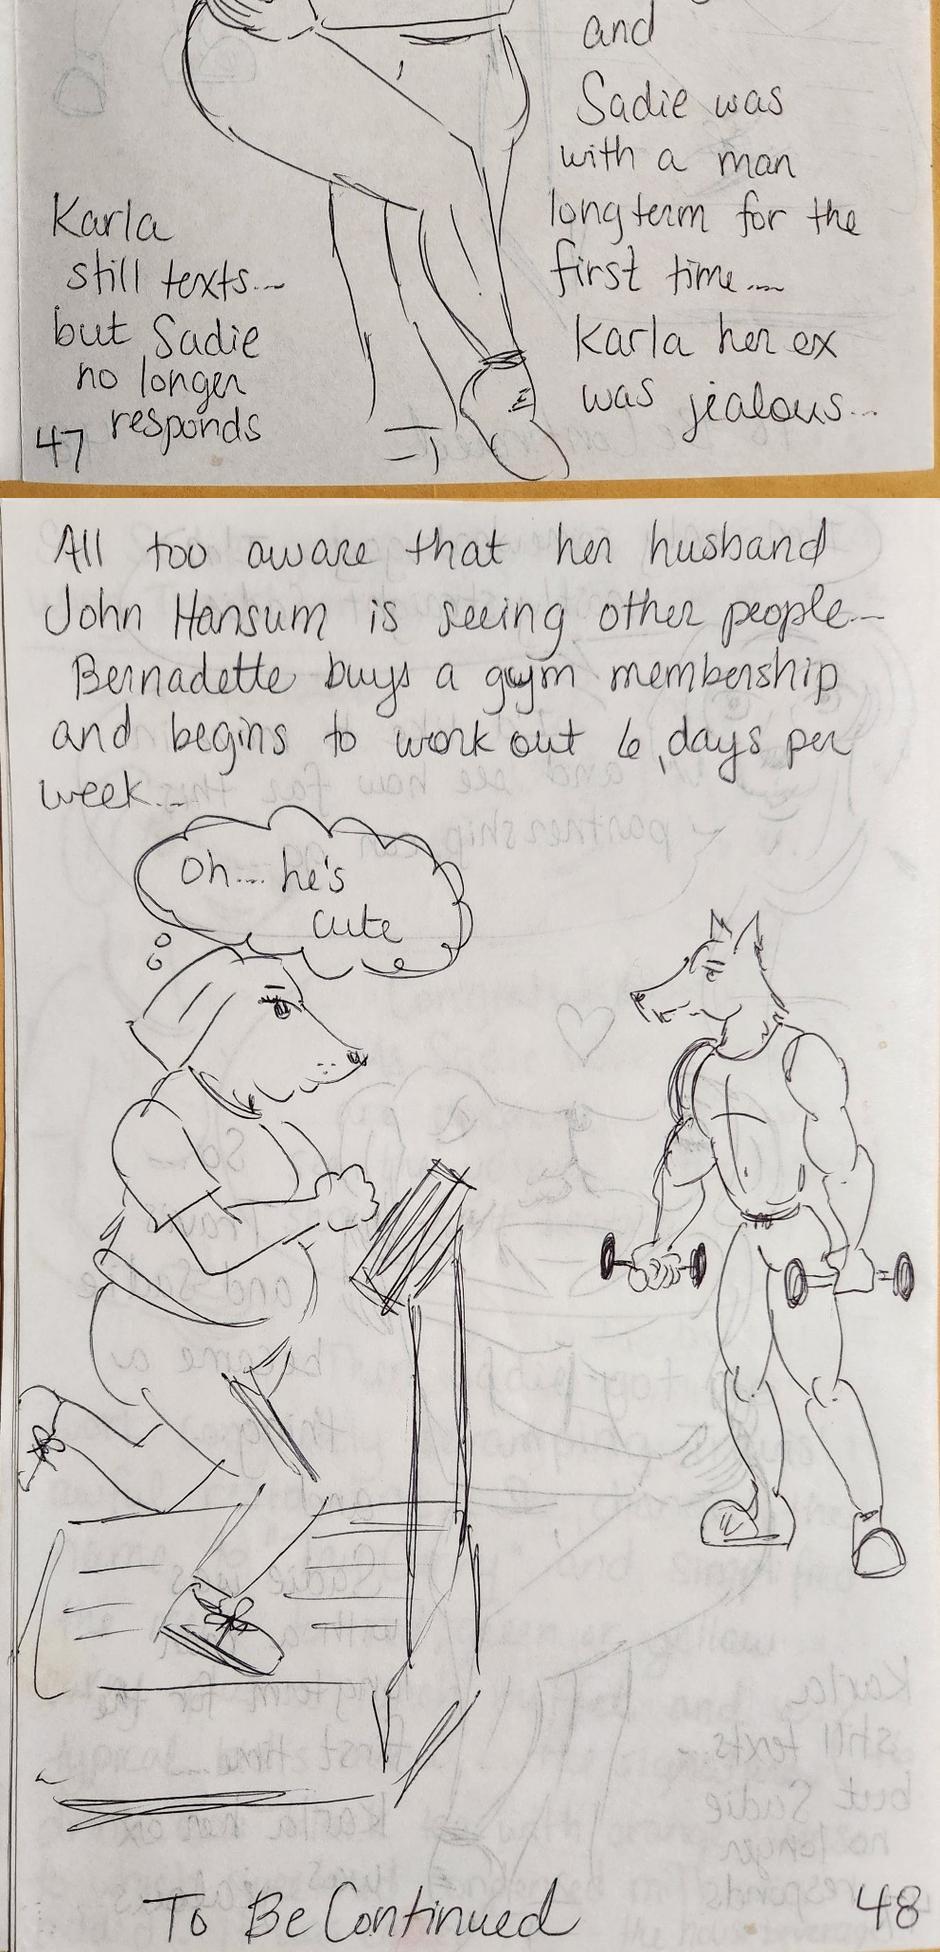 and
Sadie was
with a man
longterm for the
first time....
Karla her ex
was jealous...
Karla
still texts...
but Sadie
no longer
responds
47
All too aware that her husband
John Hansum is seeing other people—
Bernadette buys a gym membership
and begins to work out 6 days per
week...
Oh.... he's
cute
To Be Continued
48